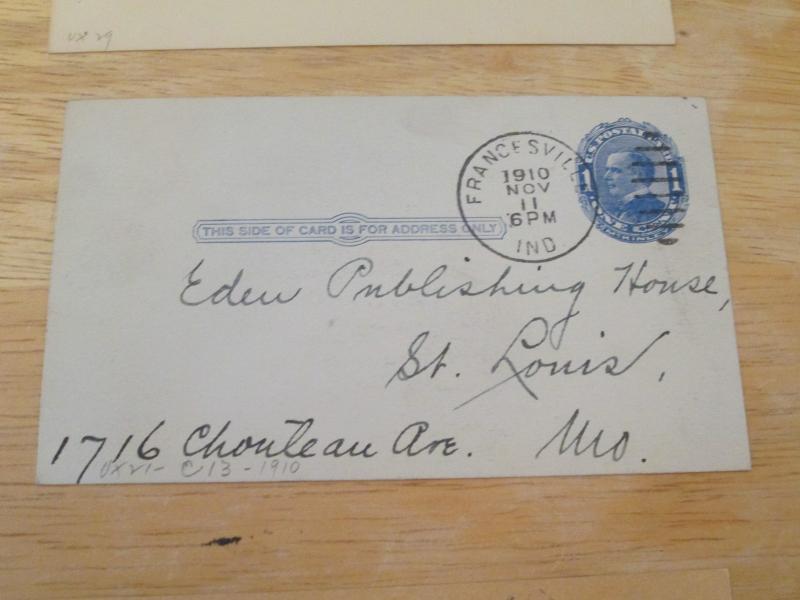 UX 29
U.S. POSTAL CARD
1 1
ONE CENT
McKINLEY
FRANCESVILLE
1910
NOV
11
6PM
IND.
THIS SIDE OF CARD IS FOR ADDRESS ONLY
Eden Publishing House,
St. Louis,
1716 Chouteau Ave. Mo.
UX21- C13 - 1910